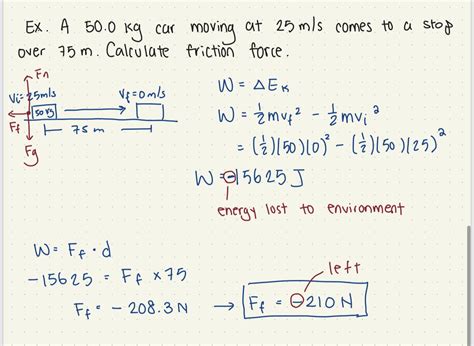 Ex. A 50.0 kg car moving at 25 m/s comes to a stop
over 75 m. Calculate friction force.
Fn
Vi = 25m/s
Vf = 0m/s
50kg
Ff
75 m
Fg
W = ΔEk
W = ½mvf² - ½mvi²
= (½)(50)(0)² - (½)(50)(25)²
W = -15625 J
energy lost to environment
W = Ff · d
-15625 = Ff × 75
Ff = -208.3 N → Ff = -210 N
left